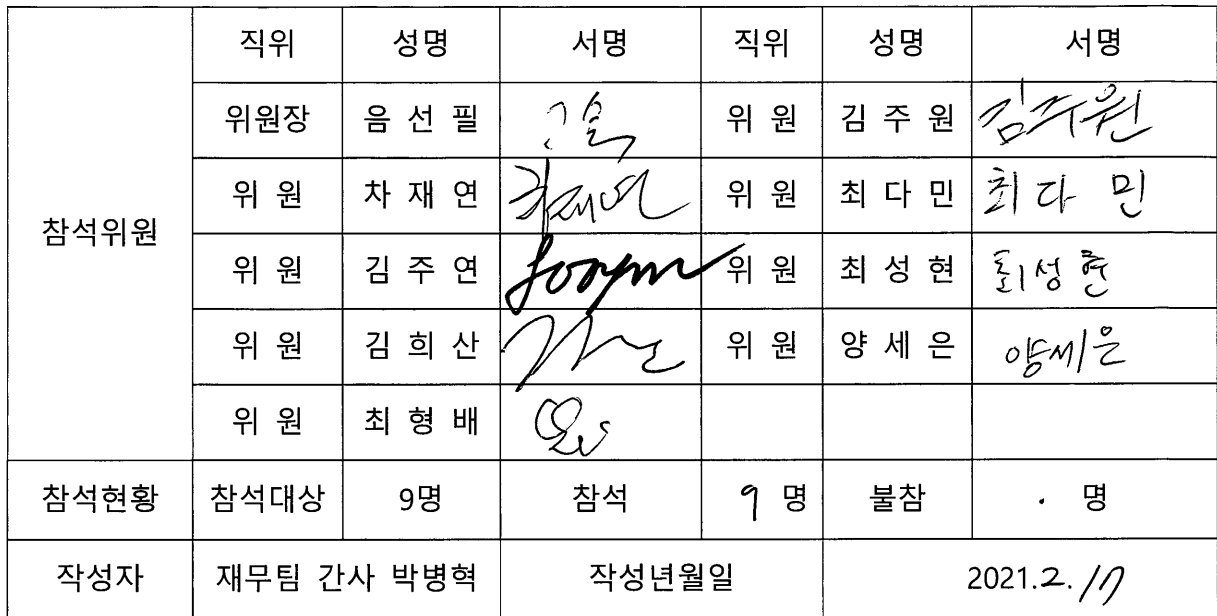 직위 성명 서명 직위 성명 서명
위원장 음 선 필 위 원 김 주 원 김주원
위 원 차 재 연 차재연 위 원 최 다 민 최다 민
참석위원
위 원 김 주 연 위 원 최 성 현 최성현
위 원 김 희 산 위 원 양 세 은 양세은
위 원 최 형 배
참석현황 참석대상 9명 참석 9 명 불참 . 명
작성자 재무팀 간사 박병혁 작성년월일 2021.2. 17